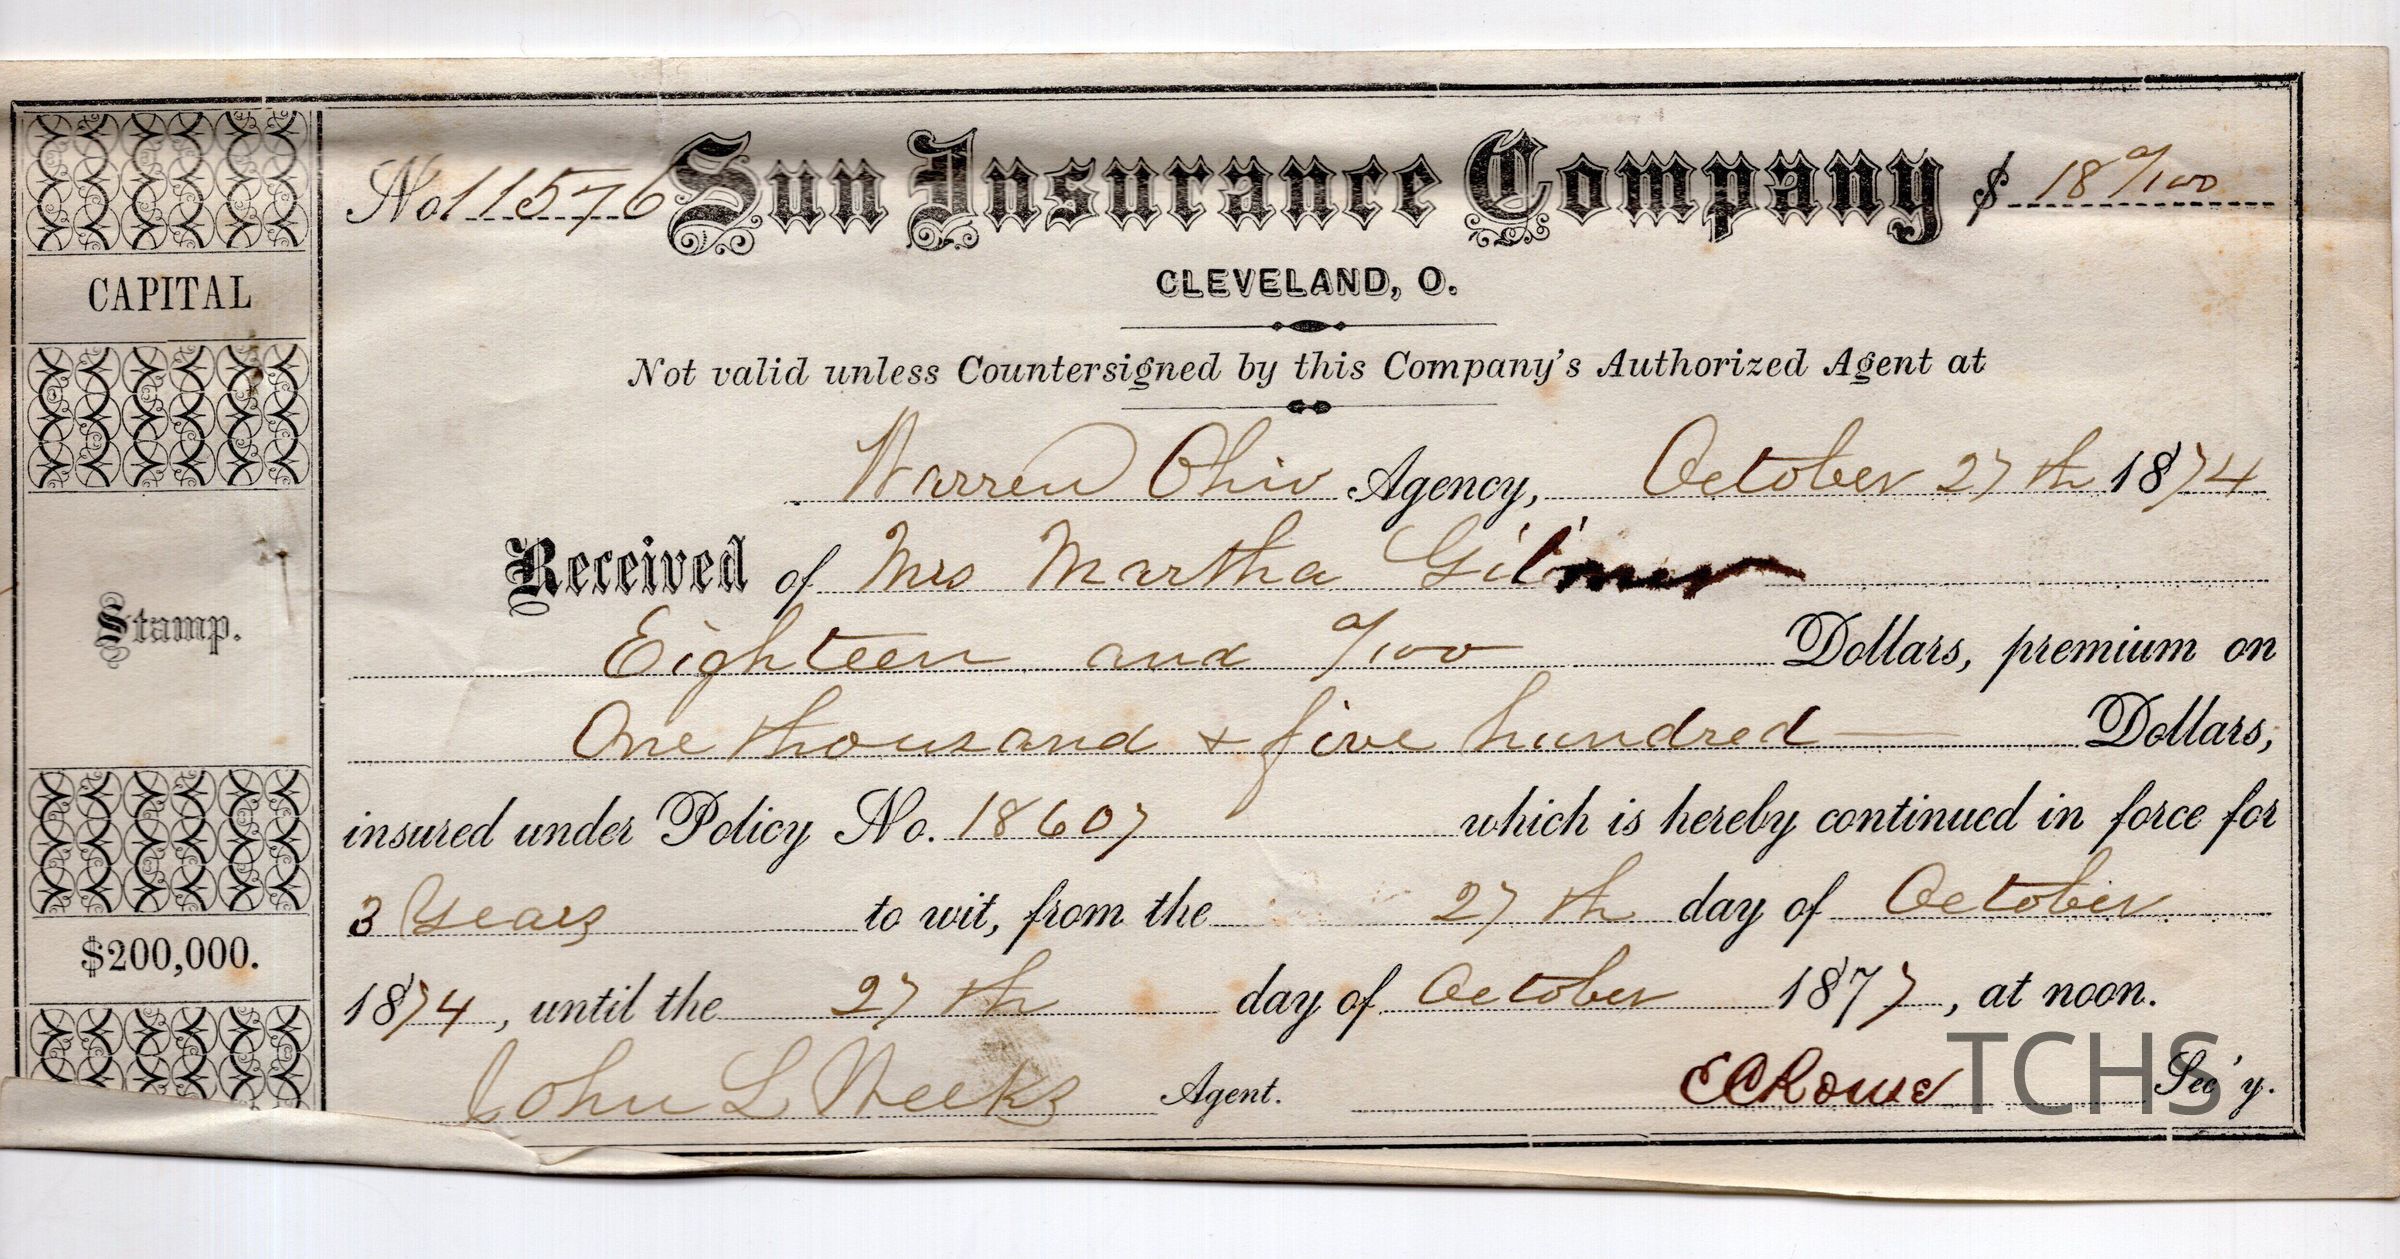 No 11576 Sun Insurance Company $ 18 0/100
CLEVELAND, O.
Not valid unless Countersigned by this Company's Authorized Agent at
Warren Ohio Agency, October 27th 1874
Received of Mrs Martha Gilmer
Eighteen and 0/100 Dollars, premium on
One thousand & five hundred Dollars,
insured under Policy No. 18607 which is hereby continued in force for
3 Years to wit, from the 27th day of October
1874, until the 27th day of October 1877, at noon.
John L Weeks Agent. E C Rouse Sec'y.
CAPITAL
Stamp.
$200,000.
TCHS